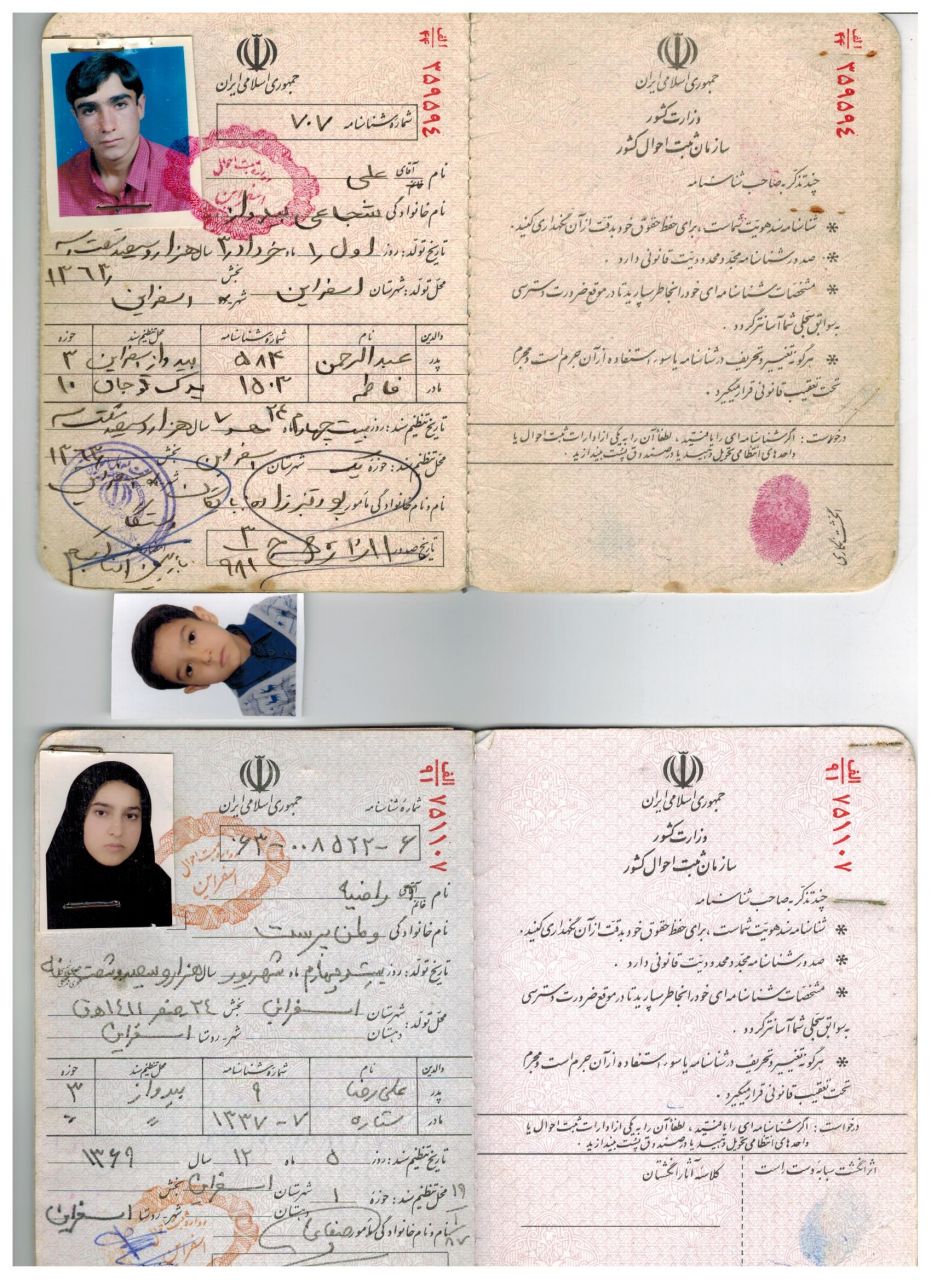 جمهوری اسلامی ایران
شماره شناسنامه ۷۰۷
الف ۴۴ ۳۵۹۵۹۴
نام آقای خانم علی
نام خانوادگی شجاعی بیدواز
تاریخ تولد: روز اول ۱ ماه خرداد ۳ سال هزار و سیصد و شصت و سه
۱۳۶۳
محل تولد: شهرستان اسفراین بخش شهر ده اسفراین
والدین نام شماره شناسنامه محل تنظیم سند حوزه
پدر عبدالرحمن ۵۸۴ بیدواز اسفراین ۳
مادر فاطمه ۱۵۰۳ قوچان ۱۰
تاریخ تنظیم سند: روز بیست چهارم ۲۴ ماه مهر ۷ سال هزار و سیصد و شصت و سه
۱۳۶۳
محل تنظیم سند: حوزه یک شهرستان اسفراین بخش
نام و نام خانوادگی مأمور
تاریخ صدور
جمهوری اسلامی ایران
وزارت کشور
سازمان ثبت احوال کشور
الف ۴۴ ۳۵۹۵۹۴
چند تذکر به صاحب شناسنامه
* شناسنامه سند هویت شماست، برای حفظ حقوق خود بدقت از آن نگهداری کنید.
* صدور شناسنامه مجدد محدودیت قانونی دارد.
* مشخصات شناسنامه ای خود را بخاطر بسپارید تا در موقع ضرورت دسترسی
به سوابق سجلی شما آسانتر گردد.
* هرگونه تغییر و تحریف در شناسنامه یا سوء استفاده از آن جرم است و مجرم
تحت تعقیب قانونی قرار میگیرد.
درخواست: اگر شناسنامه ای را یافتید، لطفاً آن را به یکی از ادارات ثبت احوال یا
واحدهای انتظامی تحویل دهید یا در صندوق پست بیندازید.
انگشت نگاری
جمهوری اسلامی ایران
شماره شناسنامه
۰۶۳-۰۰۸۵۲۲-۶
الف ۹۱ ۷۵۱۱۰۷
نام آقای خانم راضیه
نام خانوادگی وطن پرست
تاریخ تولد: روز بیست و چهارم ماه شهریور سال هزار و سیصد و شصت و نه
محل تولد: شهرستان اسفراین بخش ۲۴ صفر ۱۴۱۱ هـ ق
دهستان شهر - روستا اسفراین
والدین نام شماره شناسنامه محل تنظیم سند حوزه
پدر علی رضا ۹ بیدواز ۳
مادر ستاره ۷ - ۱۳۳۷ " "
تاریخ تنظیم سند: روز ۵ ماه ۱۲ سال ۱۳۶۹
محل تنظیم سند: حوزه ۱ شهرستان اسفراین بخش
دهستان شهر - روستا اسفراین
نام و نام خانوادگی مأمور صفائی
جمهوری اسلامی ایران
وزارت کشور
سازمان ثبت احوال کشور
الف ۹۱ ۷۵۱۱۰۷
چند تذکر به صاحب شناسنامه
* شناسنامه سند هویت شماست، برای حفظ حقوق خود بدقت از آن نگهداری کنید.
* صدور شناسنامه مجدد محدودیت قانونی دارد.
* مشخصات شناسنامه ای خود را بخاطر بسپارید تا در موقع ضرورت دسترسی
به سوابق سجلی شما آسانتر گردد.
* هرگونه تغییر و تحریف در شناسنامه یا سوء استفاده از آن جرم است و مجرم
تحت تعقیب قانونی قرار میگیرد.
درخواست: اگر شناسنامه ای را یافتید، لطفاً آن را به یکی از ادارات ثبت احوال یا
واحدهای انتظامی تحویل دهید یا در صندوق پست بیندازید.
اثر انگشت سبابه دست راست
کلاسه آثار انگشتان